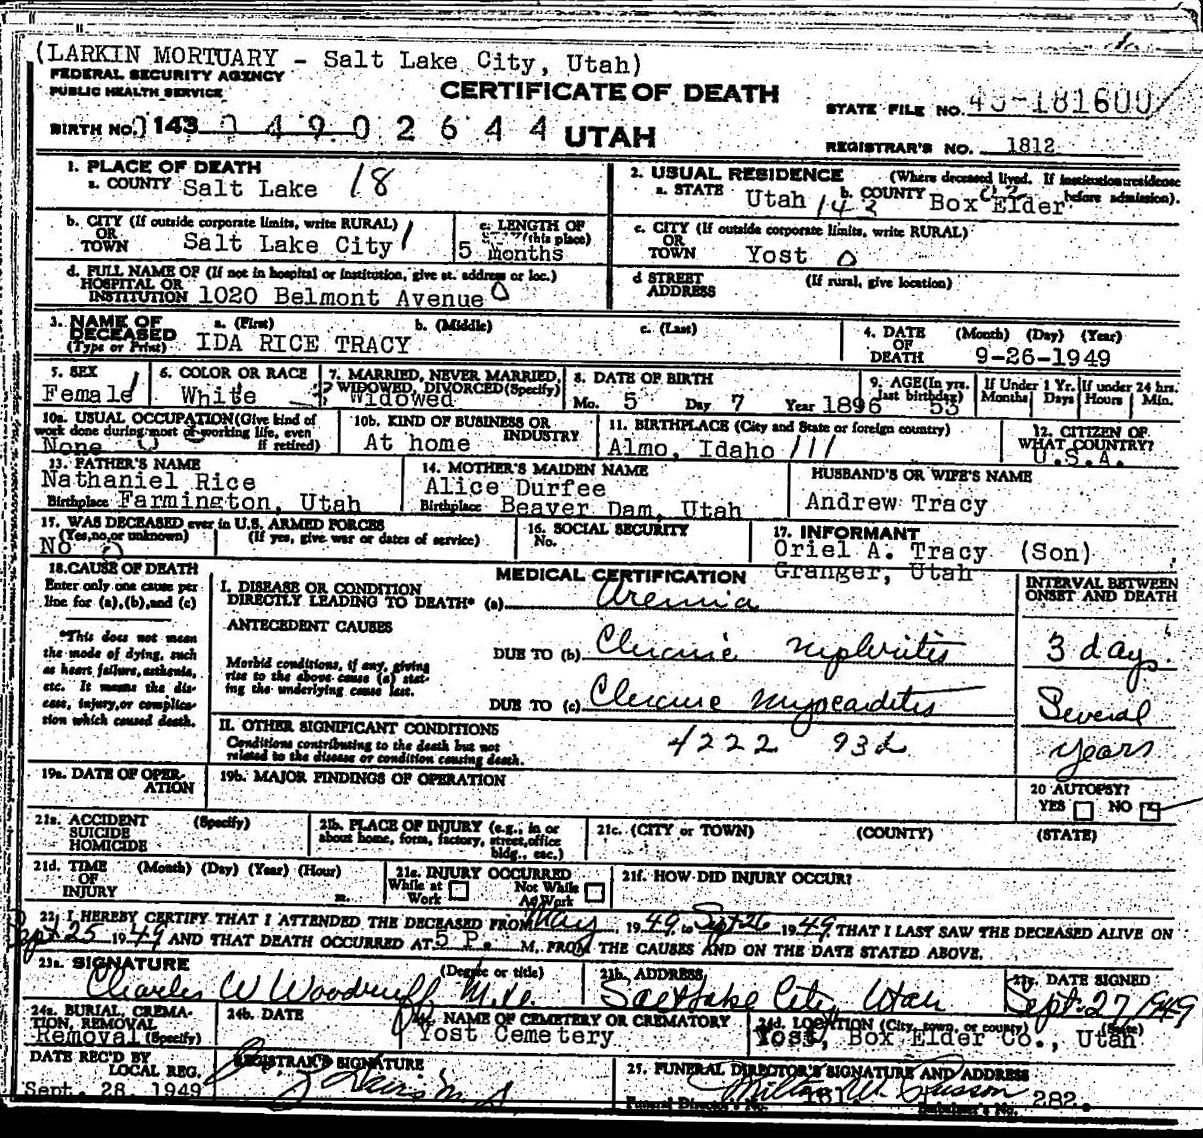 (LARKIN MORTUARY - Salt Lake City, Utah)
FEDERAL SECURITY AGENCY
PUBLIC HEALTH SERVICE
CERTIFICATE OF DEATH
STATE FILE NO. 49-181600
BIRTH NO. 143 0 4 9 0 2 6 4 4 UTAH
REGISTRAR'S NO. 1812
1. PLACE OF DEATH
a. COUNTY Salt Lake 18
2. USUAL RESIDENCE (Where deceased lived. If institution: residence before admission).
a. STATE Utah 143 b. COUNTY Box Elder 02
b. CITY (If outside corporate limits, write RURAL)
OR TOWN Salt Lake City 1
c. LENGTH OF (this place)
5 months
c. CITY (If outside corporate limits, write RURAL)
OR TOWN Yost 0
d. FULL NAME OF (If not in hospital or institution, give st. address or loc.)
HOSPITAL OR INSTITUTION 1020 Belmont Avenue 0
d STREET ADDRESS (If rural, give location)
3. NAME OF DECEASED (Type or Print)
a. (First) b. (Middle) c. (Last)
IDA RICE TRACY
4. DATE OF DEATH (Month) (Day) (Year)
9-26-1949
5. SEX
Female 1
6. COLOR OR RACE
White
7. MARRIED, NEVER MARRIED, WIDOWED, DIVORCED (Specify)
Widowed
8. DATE OF BIRTH
Mo. 5 Day 7 Year 1896
9. AGE (In yrs. last birthday)
53
If Under 1 Yr. Months Days
If under 24 hrs. Hours Min.
10a. USUAL OCCUPATION (Give kind of work done during most of working life, even if retired)
None
10b. KIND OF BUSINESS OR INDUSTRY
At home
11. BIRTHPLACE (City and State or foreign country)
Almo, Idaho 111
12. CITIZEN OF WHAT COUNTRY?
U.S.A.
13. FATHER'S NAME
Nathaniel Rice
Birthplace Farmington, Utah
14. MOTHER'S MAIDEN NAME
Alice Durfee
Birthplace Beaver Dam, Utah
HUSBAND'S OR WIFE'S NAME
Andrew Tracy
15. WAS DECEASED ever in U.S. ARMED FORCES
(Yes, no, or unknown) (If yes, give war or dates of service)
No
16. SOCIAL SECURITY
No.
17. INFORMANT
Oriel A. Tracy (Son)
Granger, Utah
18. CAUSE OF DEATH
Enter only one cause per line for (a), (b), and (c)
*This does not mean
the mode of dying, such
as heart failure, asthenia,
etc. It means the dis-
ease, injury, or complica-
tion which caused death.
MEDICAL CERTIFICATION
I. DISEASE OR CONDITION
DIRECTLY LEADING TO DEATH* (a) Uremia
ANTECEDENT CAUSES
DUE TO (b) Chronic Nephritis
Morbid conditions, if any, giving
rise to the above cause (a) stat-
ing the underlying cause last.
DUE TO (c) Chronic Myocarditis
II. OTHER SIGNIFICANT CONDITIONS
Conditions contributing to the death but not
related to the disease or condition causing death.
4222 93d
INTERVAL BETWEEN
ONSET AND DEATH
3 days
Several
years
19a. DATE OF OPER-
ATION
19b. MAJOR FINDINGS OF OPERATION
20 AUTOPSY?
YES NO
21a. ACCIDENT (Specify)
SUICIDE
HOMICIDE
21b. PLACE OF INJURY (e.g., in or
about home, form, factory, street, office
bldg., esc.)
21c. (CITY or TOWN) (COUNTY) (STATE)
21d. TIME (Month) (Day) (Year) (Hour)
OF
INJURY m.
21e. INJURY OCCURRED
While at Work Not While At Work
21f. HOW DID INJURY OCCUR?
22. I HEREBY CERTIFY THAT I ATTENDED THE DECEASED FROM May 1949 to Sept 26 1949 THAT I LAST SAW THE DECEASED ALIVE ON
Sept 25 1949 AND THAT DEATH OCCURRED AT 5 P. M. FROM THE CAUSES AND ON THE DATE STATED ABOVE.
23a. SIGNATURE (Degree or title)
Charles W Woodruff M.D.
21b. ADDRESS
Salt Lake City Utah
DATE SIGNED
Sept. 27, 1949
24a. BURIAL, CREMA-
TION, REMOVAL
Removal (Specify)
24b. DATE
NAME OF CEMETERY OR CREMATORY
Yost Cemetery
24d. LOCATION (City, town, or county) (State)
Yost, Box Elder Co., Utah
DATE REC'D BY
LOCAL REG.
Sept. 28, 1949
REGISTRAR'S SIGNATURE
25. FUNERAL DIRECTOR'S SIGNATURE AND ADDRESS
Funeral Director's No. 282.